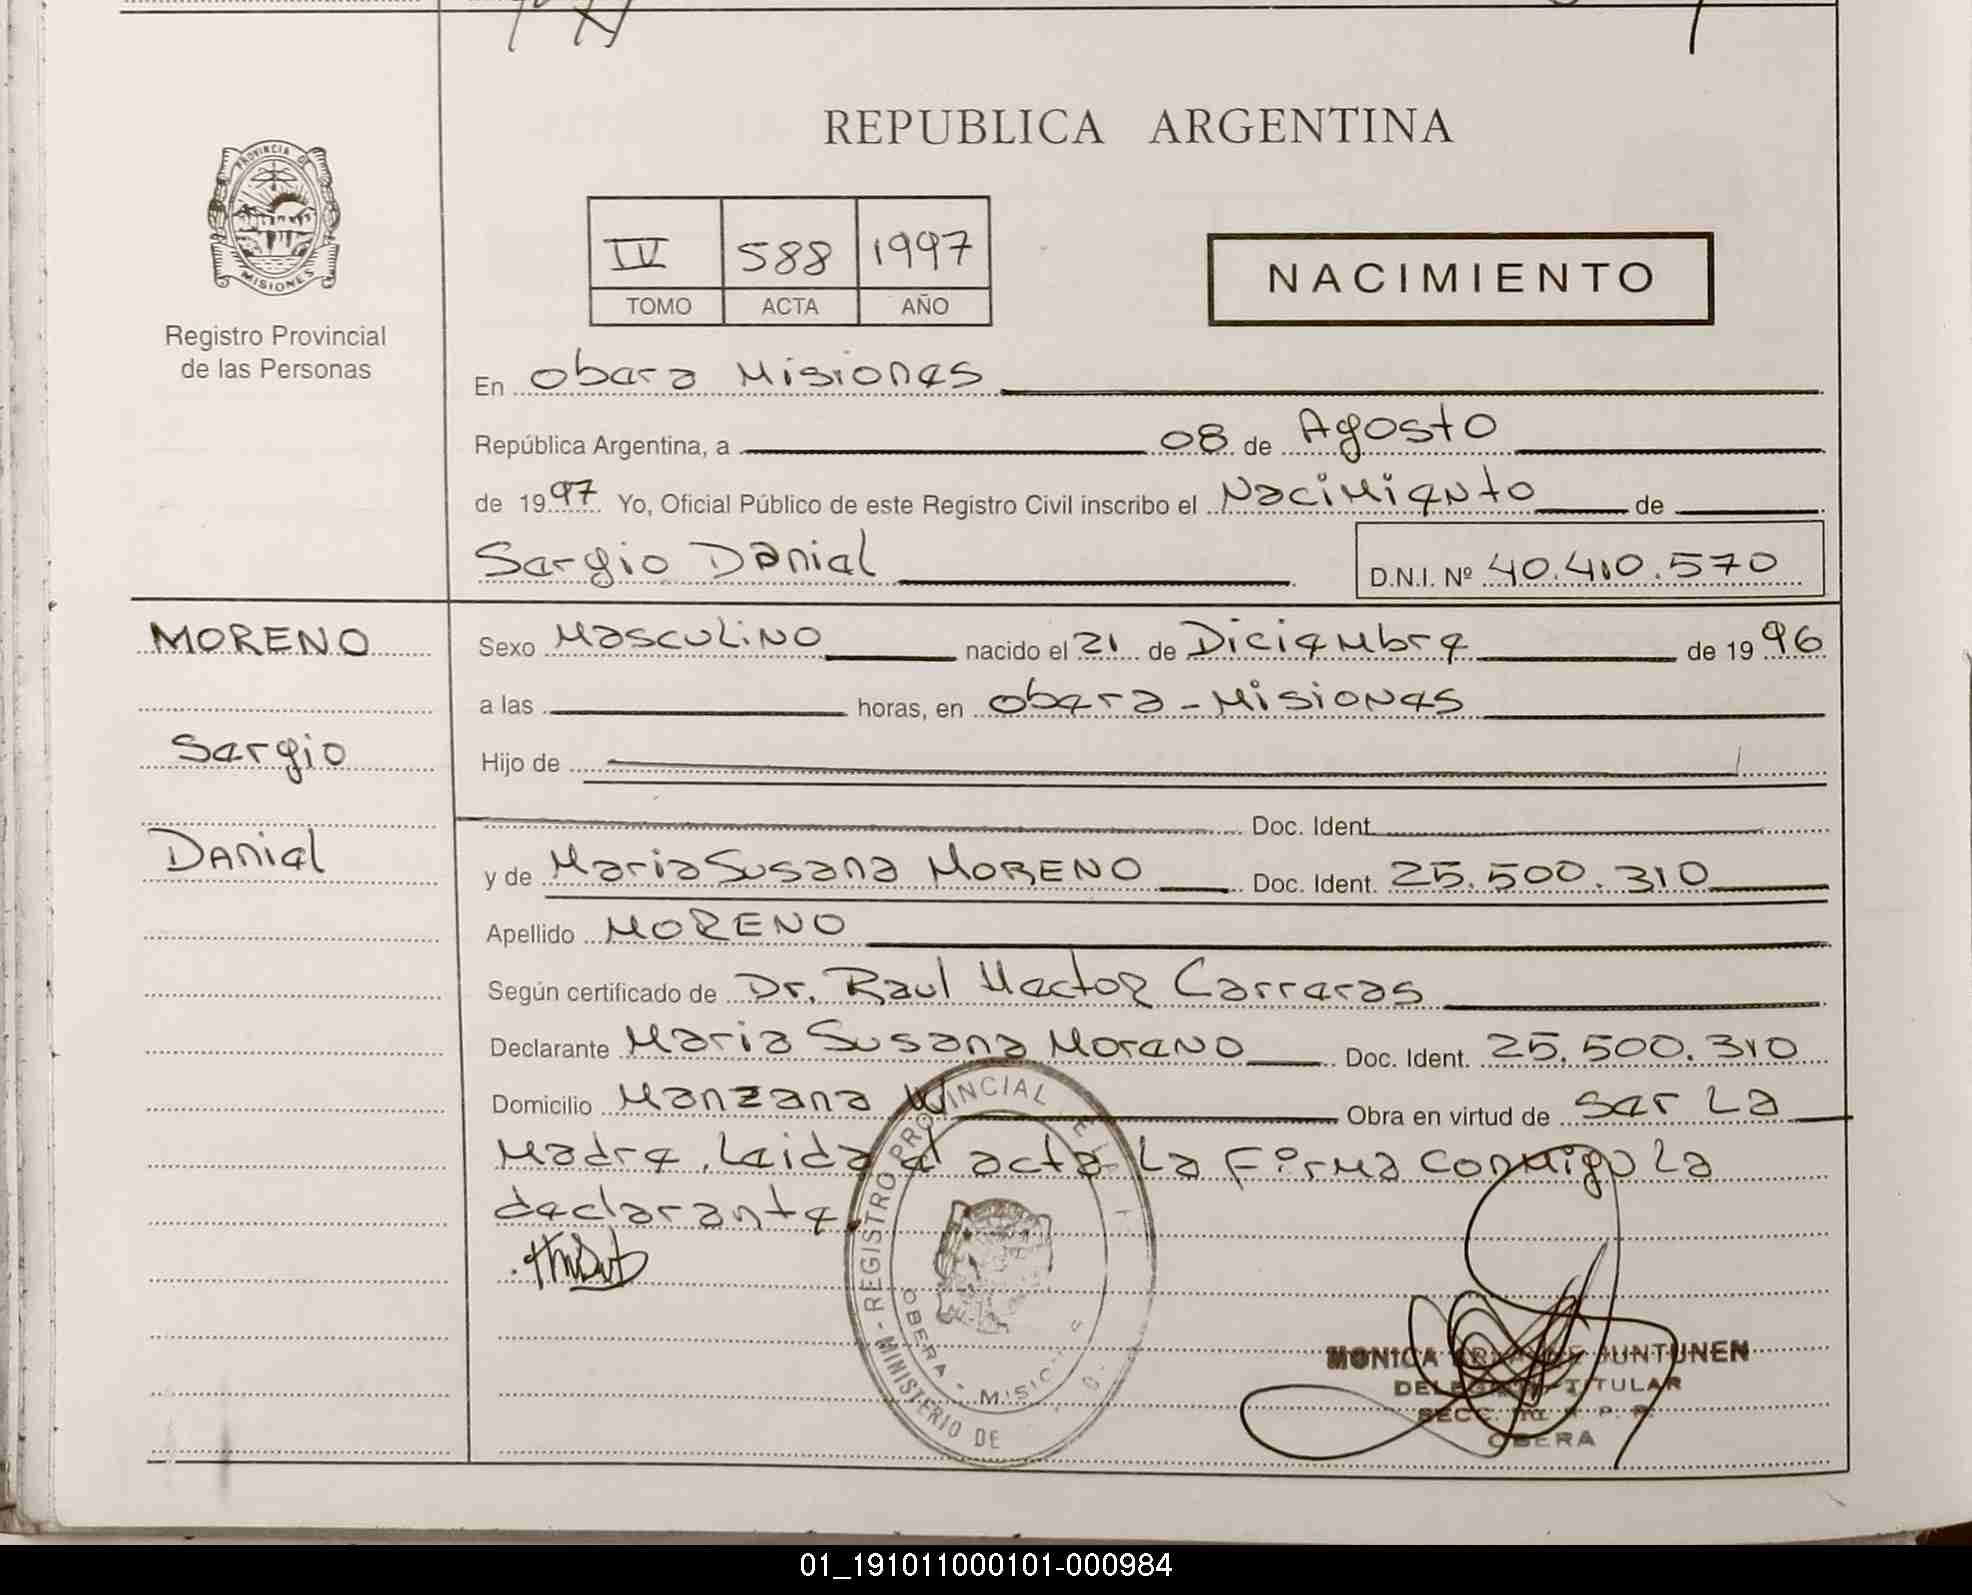 REPUBLICA ARGENTINA
PROVINCIA DE
MISIONES
Registro Provincial
de las Personas
IV 588 1997
TOMO ACTA AÑO
NACIMIENTO
En Obera Misiones
República Argentina, a 08 de Agosto
de 1997 Yo, Oficial Público de este Registro Civil inscribo el Nacimiento de
Sergio Daniel D.N.I. Nº 40.410.570
MORENO
Sergio
Daniel
Sexo Masculino nacido el 21 de Diciembre de 1996
a las horas, en Obera - Misiones
Hijo de
Doc. Ident.
y de Maria Susana MORENO Doc. Ident. 25.500.310
Apellido MORENO
Según certificado de Dr. Raul Hector Carreras
Declarante Maria Susana Moreno Doc. Ident. 25.500.310
Domicilio Manzana W Obra en virtud de ser La
Madre. Leida el acta La Firma conmigo La
declarante.
REGISTRO PROVINCIAL
OBERA - MISIO
MINISTERIO DE
MONICA JUNTUNEN
TITULAR
SECC.
OBERA
01_191011000101-000984